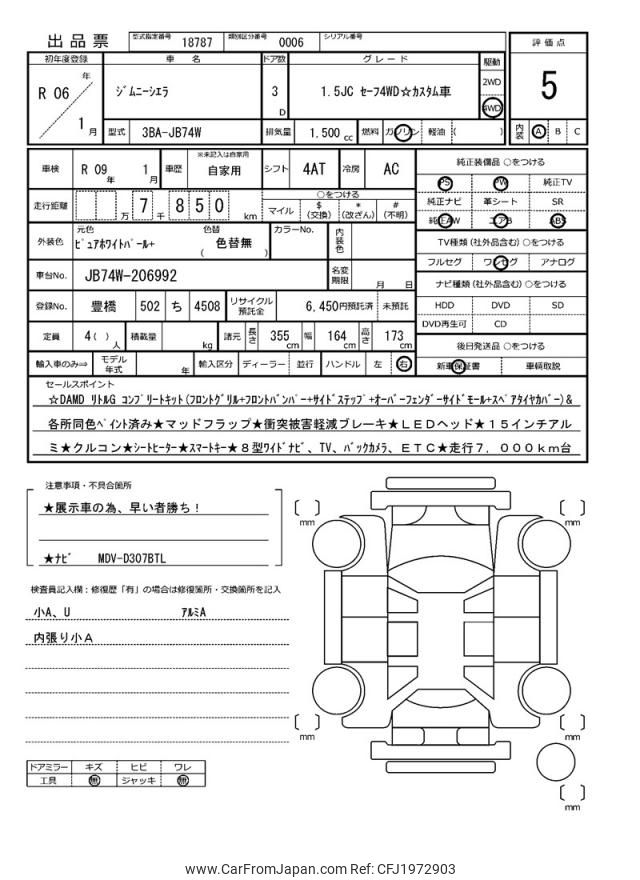 出品票 型式指定番号 18787 類別区分番号 0006 シリアル番号
評価点
5
初年度登録 車名 ドア数 グレード 駆動
R 06 年 1 月
ジムニーシエラ 3 D 1.5JC セーフ4WD☆カスタム車 2WD 4WD
型式 3BA-JB74W 排気量 1.500 cc 燃料 ガソリン 軽油 ( ) 内装 A B C
車検 R 09 年 1 月 車歴 ※未記入は自家用 自家用 シフト 4AT 冷房 AC
純正装備品 ○をつける
PS PW 純正TV
純正ナビ 革シート SR
純正AW エアB ABS
走行距離 万 7 千 8 5 0 km
○をつける
マイル $ (交換) * (改ざん) # (不明)
TV種類 (社外品含む) ○をつける
フルセグ ワンセグ アナログ
外装色 元色 ピュアホワイトパール+ 色替 ( 色替無 ) カラーNo. 内装色
ナビ種類 (社外品含む) ○をつける
HDD DVD SD
DVD再生可 CD
車台No. JB74W-206992 名変期限 月 日
登録No. 豊橋 502 ち 4508 リサイクル預託金 6,450円預託済 未預託
定員 4( ) 人 積載量 kg 諸元 長さ 355 cm 幅 164 cm 高さ 173 cm
後日発送品 ○をつける
新車保証書 車輌取説
輸入車のみ⇒ モデル年式 年 輸入区分 ディーラー 並行 ハンドル 左 右
セールスポイント
☆DAMD リトルG コンプリートキット(フロントグリル+フロントバンパー+サイドステップ+オーバーフェンダーサイドモール+スペアタイヤカバー)&
各所同色ペイント済み★マッドフラップ★衝突被害軽減ブレーキ★LEDヘッド★15インチアル
ミ★クルコン★シートヒーター★スマートキー★8型ワイドナビ、TV、バックカメラ、ETC★走行7,000km台
注意事項・不具合箇所
★展示車の為、早い者勝ち!
★ナビ MDV-D307BTL
検査員記入欄:修復歴「有」の場合は修復箇所・交換箇所を記入
小A、U アルミA
内張り小A
mm
mm
mm
mm
mm
ドアミラー キズ ヒビ ワレ
工具 無 ジャッキ 無
www.CarFromJapan.com Ref: CFJ1972903